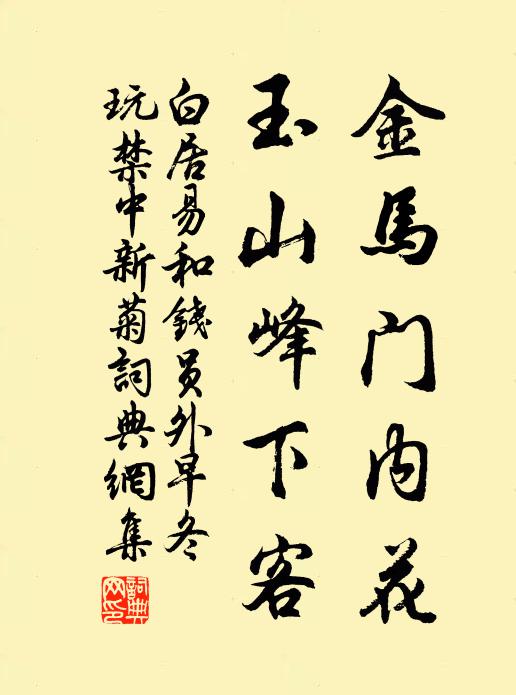 金馬门内花
玉山峰下客
白居易和錢员外早冬
玩禁中新菊詞典網集
詞典
网印